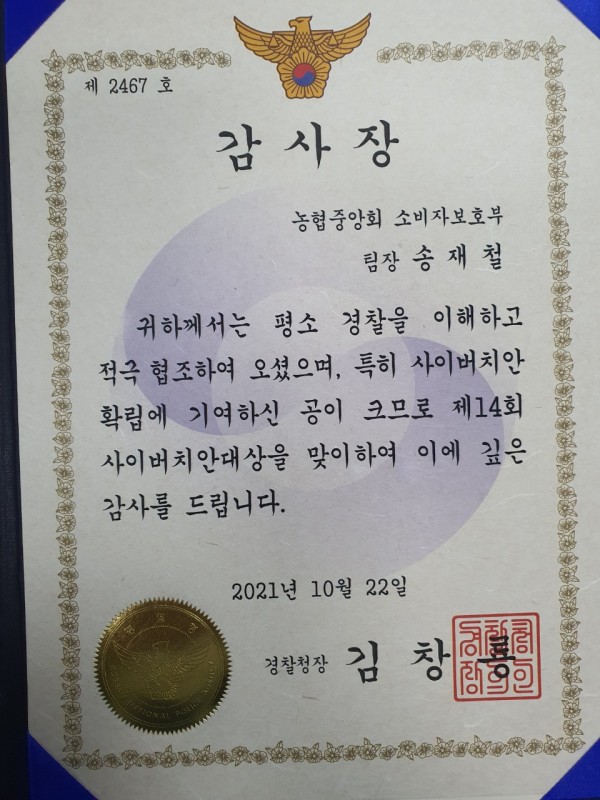 제 2467 호
감사장
농협중앙회 소비자보호부
팀장 송재철
귀하께서는 평소 경찰을 이해하고
적극 협조하여 오셨으며, 특히 사이버치안
확립에 기여하신 공이 크므로 제14회
사이버치안대상을 맞이하여 이에 깊은
감사를 드립니다.
2021년 10월 22일
경찰청장 김창룡